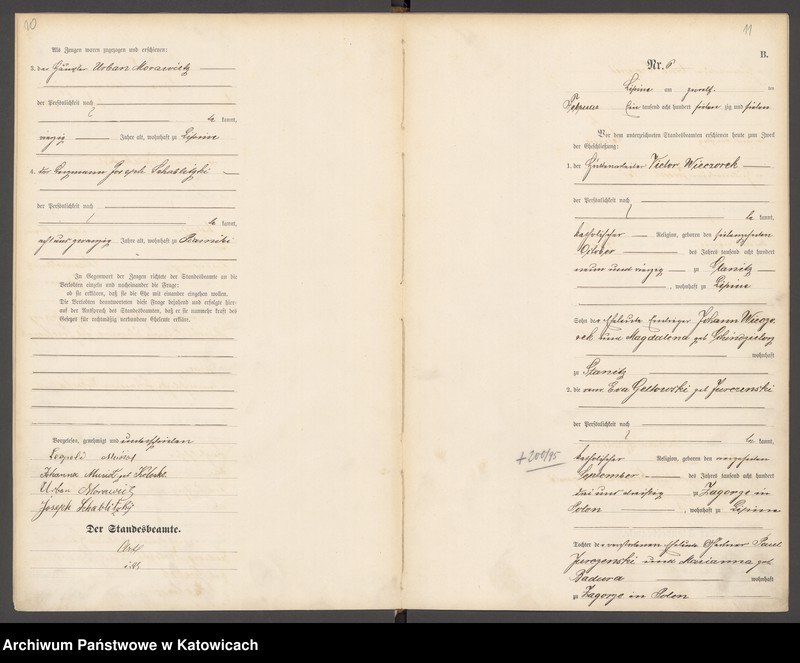 10
Als Zeugen waren zugezogen und erschienen:
3. der Häusler Urban Morawietz
der Persönlichkeit nach
be kannt,
vierzig Jahre alt, wohnhaft zu Lipine
4. der Joseph Schablitzki
der Persönlichkeit nach
be kannt,
acht und zwanzig Jahre alt, wohnhaft zu
In Gegenwart der Zeugen richtete der Standesbeamte an die
Verlobten einzeln und nacheinander die Frage:
ob sie erklären, daß sie die Ehe mit einander eingehen wollen.
Die Verlobten beantworteten diese Frage bejahend und erfolgte hier-
auf der Ausspruch des Standesbeamten, daß er sie nunmehr kraft des
Gesetzes für rechtmäßig verbundene Eheleute erkläre.
Vorgelesen, genehmigt und unterschrieben
Leopold
Johanna geb
Urban Morawietz
Joseph Schablitzki
Der Standesbeamte.
11
B.
Nr. 6
Lipine am zwölf. ten
Februar Ein tausend acht hundert sieben zig und sieben
Vor dem unterzeichneten Standesbeamten erschienen heute zum Zweck
der Eheschließung:
1. der Hüttenarbeiter Victor Wieczorek
der Persönlichkeit nach
be kannt,
katholischer Religion, geboren den siebenzehnten
Oktober des Jahres tausend acht hundert
neun und vierzig zu Stanitz
, wohnhaft zu Lipine
Sohn der Eheleute Einlieger Johann Wieczo-
rek und Magdalena geb
wohnhaft
zu Stanitz
2. die Eva geb Jurczenski
der Persönlichkeit nach
be kannt,
+200/45
katholischer Religion, geboren den
September des Jahres tausend acht hundert
drei und dreißig zu Zagorze in
Polen , wohnhaft zu Lipine
Tochter der verstorbenen Eheleute Paul
Jurczenski und Marianna geb
Badura wohnhaft
zu Zagorze in Polen
Archiwum Państwowe w Katowicach